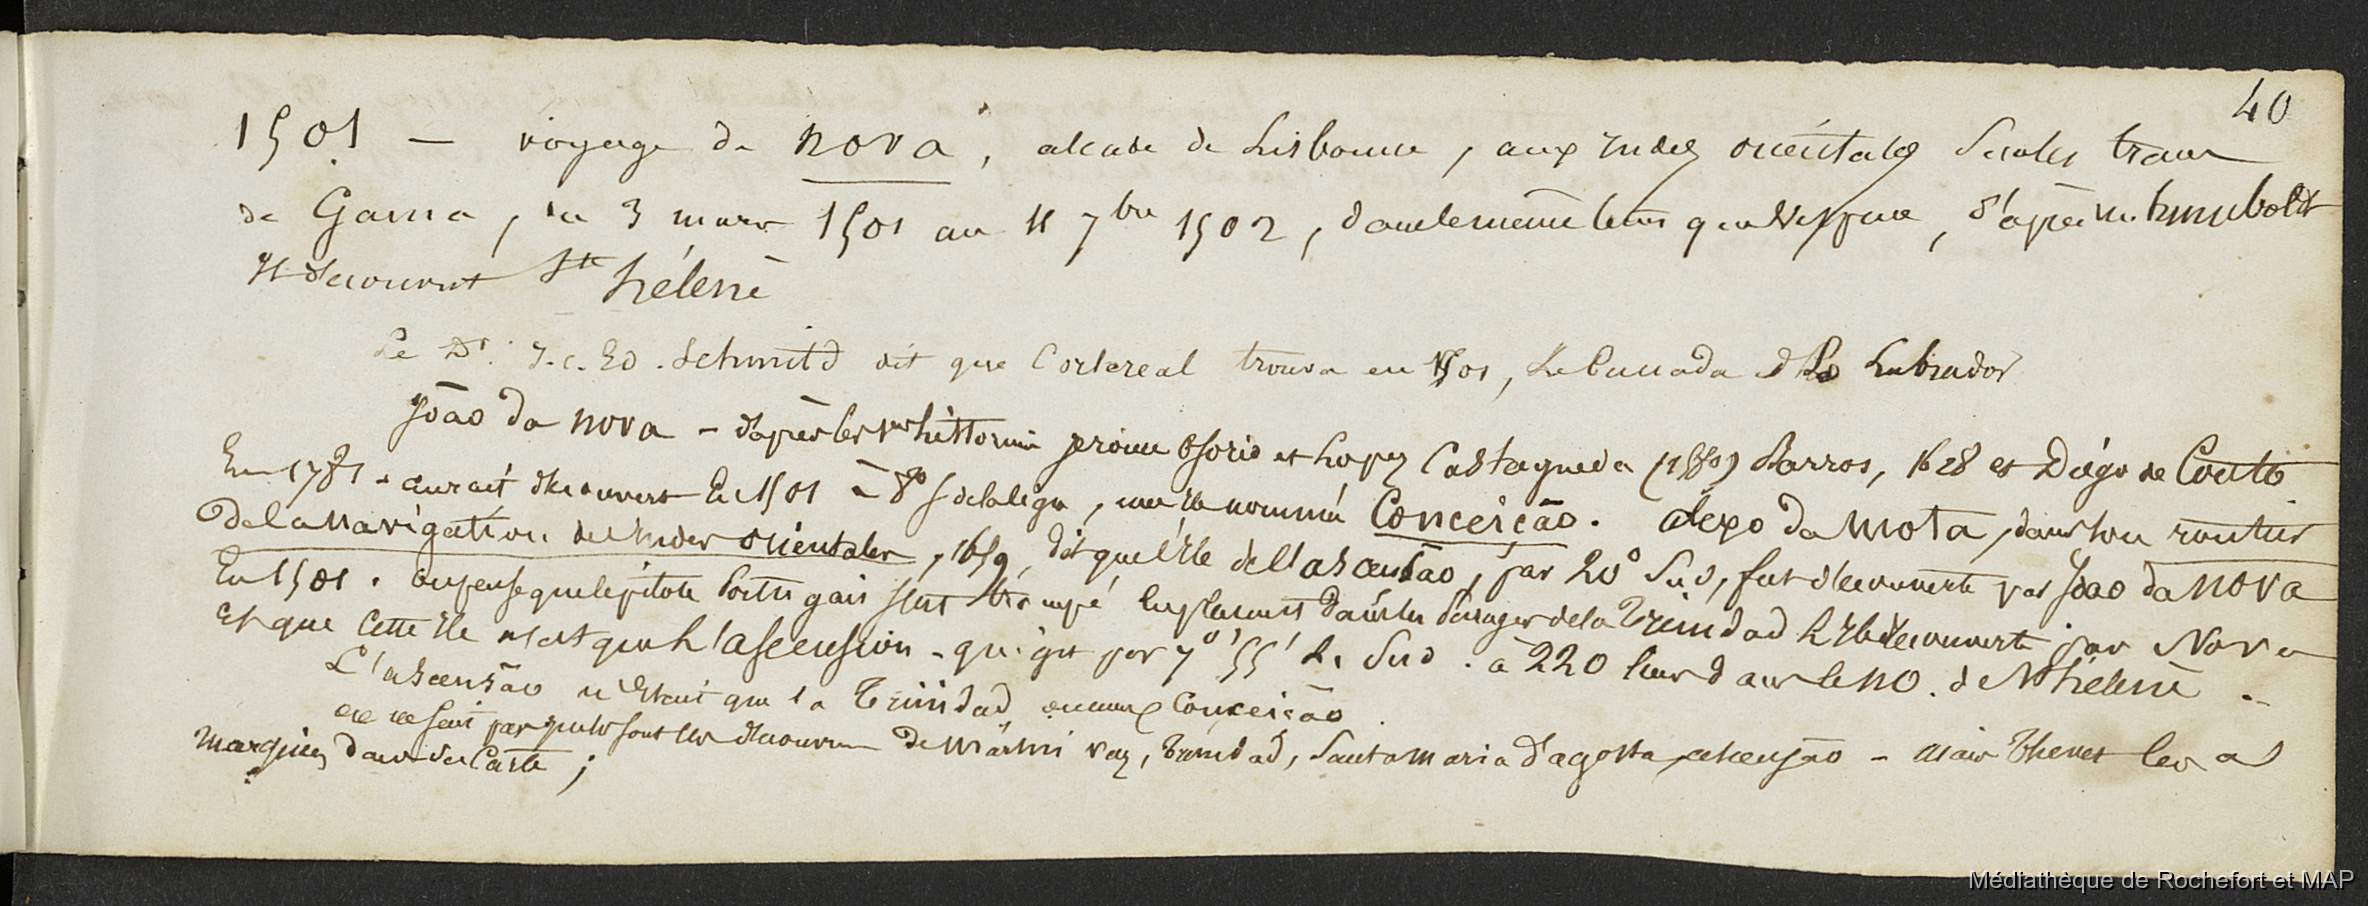 40
1501 — voyage de Nova, alcade de Lisbonne, aux Indes orientales sur les traces
de Gama, du 3 mars 1501 au 11 7bre 1502, dans le même tems que Vespuce, d'après M. humboldt
Il découvrit Ste hélène
Le Dr. J. C. Ed. Schmitd dit que Cortereal trouva en 1501, le Canada et le Labrador
João da Nova – d'après les historiens jerome Osorio et Lopez Castagneda Barros, 1628 et Diégo de Couto
En 1781 - aurait découvert en 1501 à 8° S de la ligne, une île nommée Conceição. Alexo da Mota, dans son routier
de la navigation des Indes orientales, 1659, dit que l'île de l'ascensão, par 20° Sud, fut découverte par João da Nova
En 1501. on pense que le pilote Portugais s'est trompé en plaçant dans les parages de la Trinidad l'île découverte par Nova
et que cette île n'est que l'ascension - qui gît par 7° 55' de Sud. à 220 lieues dans le NO. de Ste hélène -
L'ascensão n'était que la Trinidad, ou mieux Conceição.
on ne sait par qui ont été découvertes de Martin Vaz, Trinidad, Santa Maria d'agosta, ascensão – mais Thevet les a
marquées dans des Carte ;
Médiathèque de Rochefort et MAP